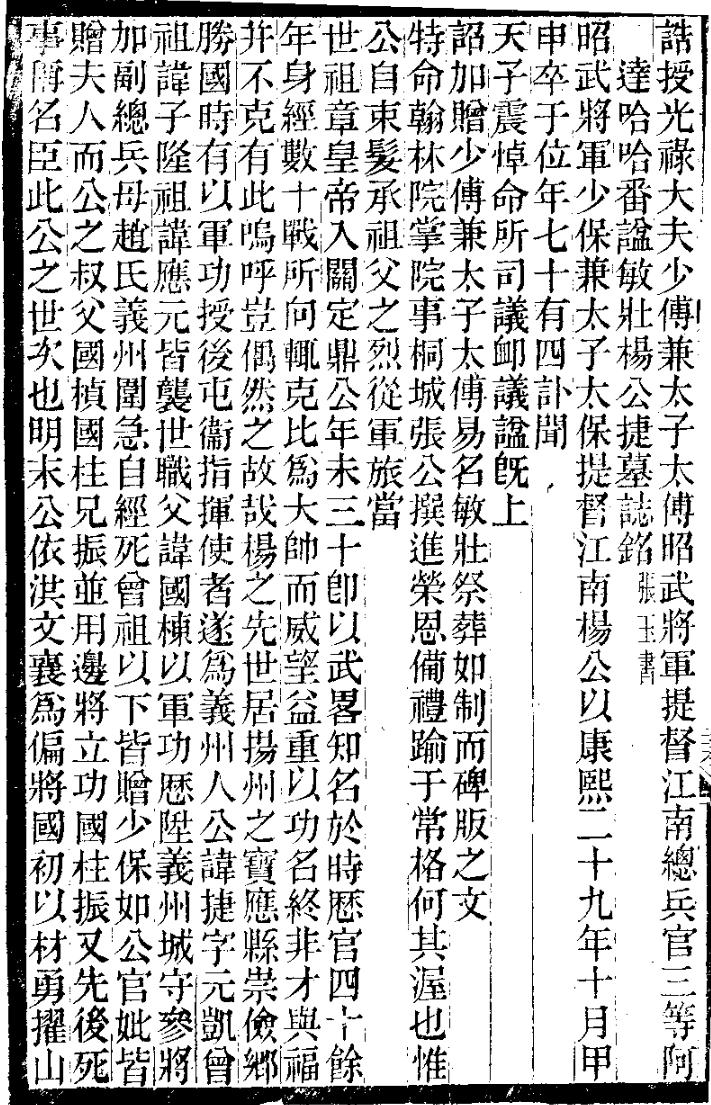 誥授光祿大夫少傅兼太子太傅昭武將軍提督江南總兵官三等阿
達哈哈番諡敏壯楊公捷墓誌銘張玉書
昭武將軍少保兼太子太保提督江南楊公以康熙二十九年十月甲
申卒于位年七十有四訃聞
天子震悼命所司議卹議諡旣上
詔加贈少傅兼太子太傅易名敏壯祭葬如制而碑版之文
特命翰林院掌院事桐城張公撰進榮恩備禮踰于常格何其渥也惟
公自束髮承祖父之烈從軍旅當
世祖章皇帝入關定鼎公年未三十卽以武畧知名於時歷官四十餘
年身經數十戰所向輒克比爲大帥而威望益重以功名終非才與福
并不克有此嗚呼豈偶然之故哉楊之先世居揚州之寶應縣崇儉鄉
勝國時有以軍功授後屯衞指揮使者遂爲義州人公諱捷字元凱曾
祖諱子隆祖諱應元皆襲世職父諱國棟以軍功歷陞義州城守參將
加副總兵母趙氏義州圍急自經死曾祖以下皆贈少保如公官妣皆
贈夫人而公之叔父國楨國柱兄振並用邊將立功國柱振又先後死
事稱名臣此公之世次也明末公依洪文襄爲偏將國初以材勇擢山